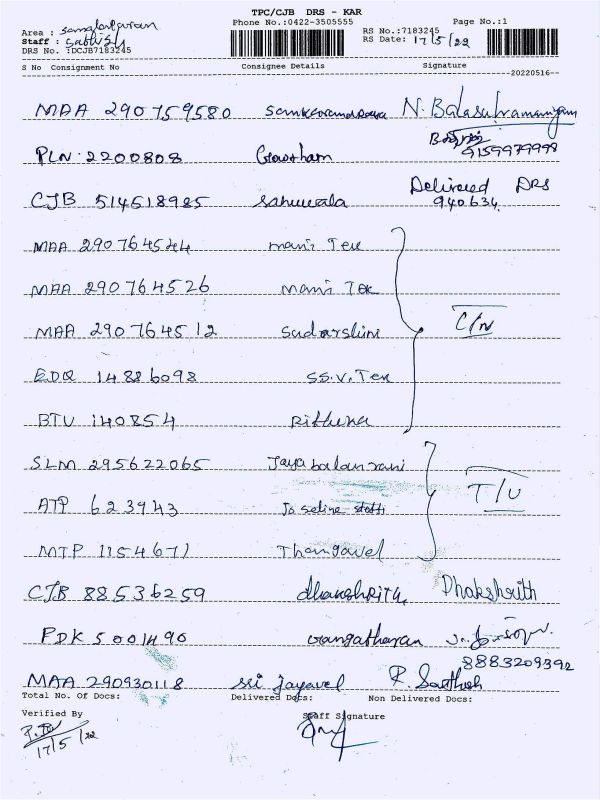 TPC/CJB DRS - KAR
Phone No.:0422-3505555
Page No.:1
Area :
Staff : Sathish
DRS No. :DCJB7183245
RS No.:7183245
RS Date: 17/5/22
S No Consignment No Consignee Details Signature
--20220516--
MAA 290759580 N. Balasubramaniyam
9159979998
PLN 2200808 Gowtham
CJB 514518985 Sahuwala Delivered DRS
940634
MAA 290764544 mani Tex
MAA 290764526 mani Tex
MAA 290764512 Sudarshini
C/N
EDR 14886098 SS.V. Tex
BTU 140854 Rithuna
SLM 295622065 Jayabalan rani
T/U
ATP 623943
MTP 1154671 Thangavel
CJB 88536259 dhakshrith Dhakshrith
PDK 5001490 rangatharan
8883209392
MAA 290930118 Sri Jayavel R Santhosh
Total No. Of Docs: Delivered Docs: Non Delivered Docs:
Verified By Staff Signature
17/5/22